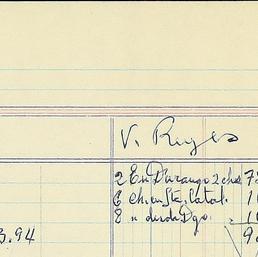 V. Reyes
2 En Durango 2 ches 7
6 Ch. en Sta. Catal. 1
8 " desde Dgo. 1
3.94 9